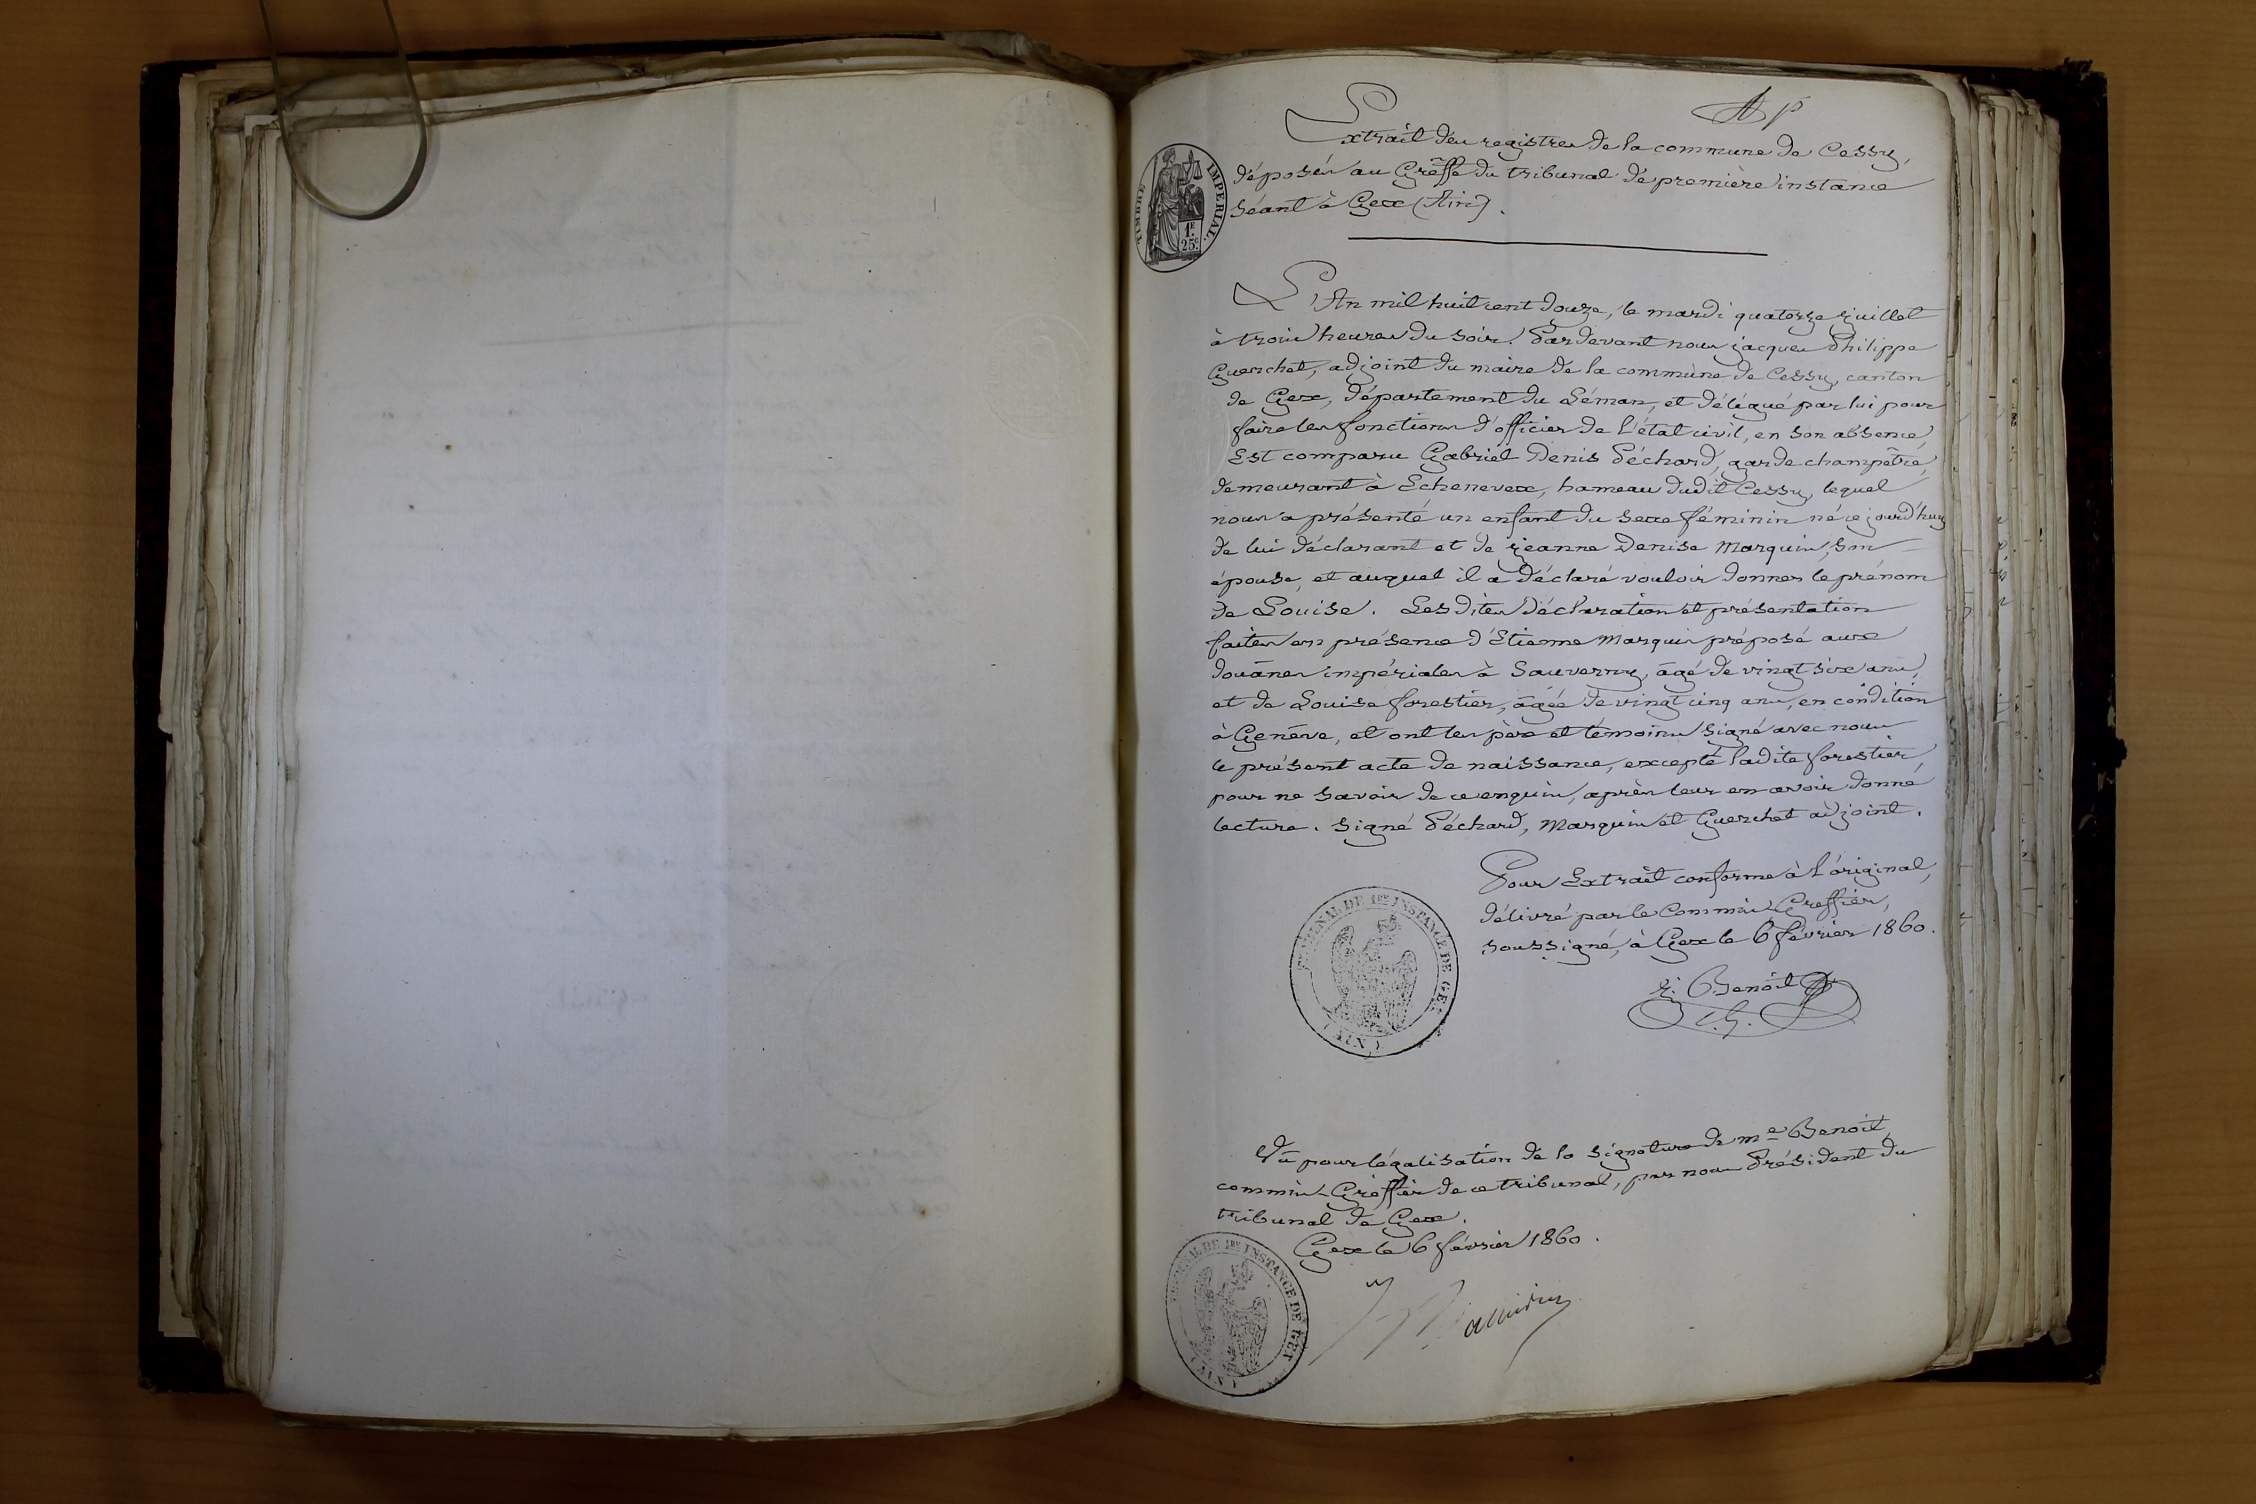 Extrait des registres de la commune de Cessy,
déposés au Greffe du tribunal de première instance
séant à Gex (Ain).
TIMBRE IMPERIAL.
1F.
25c.
L'An mil huit cent douze, le mardi quatorze juillet
à trois heures du soir. Pardevant nous jacques Philippe
Guerchet, adjoint du maire de la commune de Cessy, canton
de Gex, département du Léman, et délégué par lui pour
faire les fonctions d'officier de l'état civil, en son absence,
Est comparu Gabriel Denis Péchard, garde champêtre,
demeurant à Echenevex, hameau dudit Cessy, lequel
nous a présenté un enfant du sexe féminin né ce jourd'huy
de lui déclarant et de jeanne Denise Marquis, son
épouse, et auquel il a déclaré vouloir donner le prénom
de Louise. Les dites déclaration et présentation
faites en présence d'Etienne Marquis préposé aux
douanes impériales à Sauverny, âgé de vingt six ans,
et de Louise forestier, âgée de vingt cinq ans, en condition
à Genève, et ont les père et témoins signé avec nous
le présent acte de naissance, excepté ladite forestier,
pour ne savoir de ce enquis, après leur en avoir donné
lecture. Signé Péchard, Marquis et Guerchet adjoint.
Pour Extrait conforme à l'original,
délivré par le Commis Greffier,
soussigné, à Gex le 6 février 1860.
j. Benoit
c. G.
TRIBUNAL DE 1RE INSTANCE DE GEX
(AIN)
Vu pour légalisation de la signature de Me Benoit,
commis-Greffier de ce tribunal, par nous Président du
tribunal de Gex.
Gex le 6 février 1860.
TRIBUNAL DE 1RE INSTANCE DE GEX
(AIN)